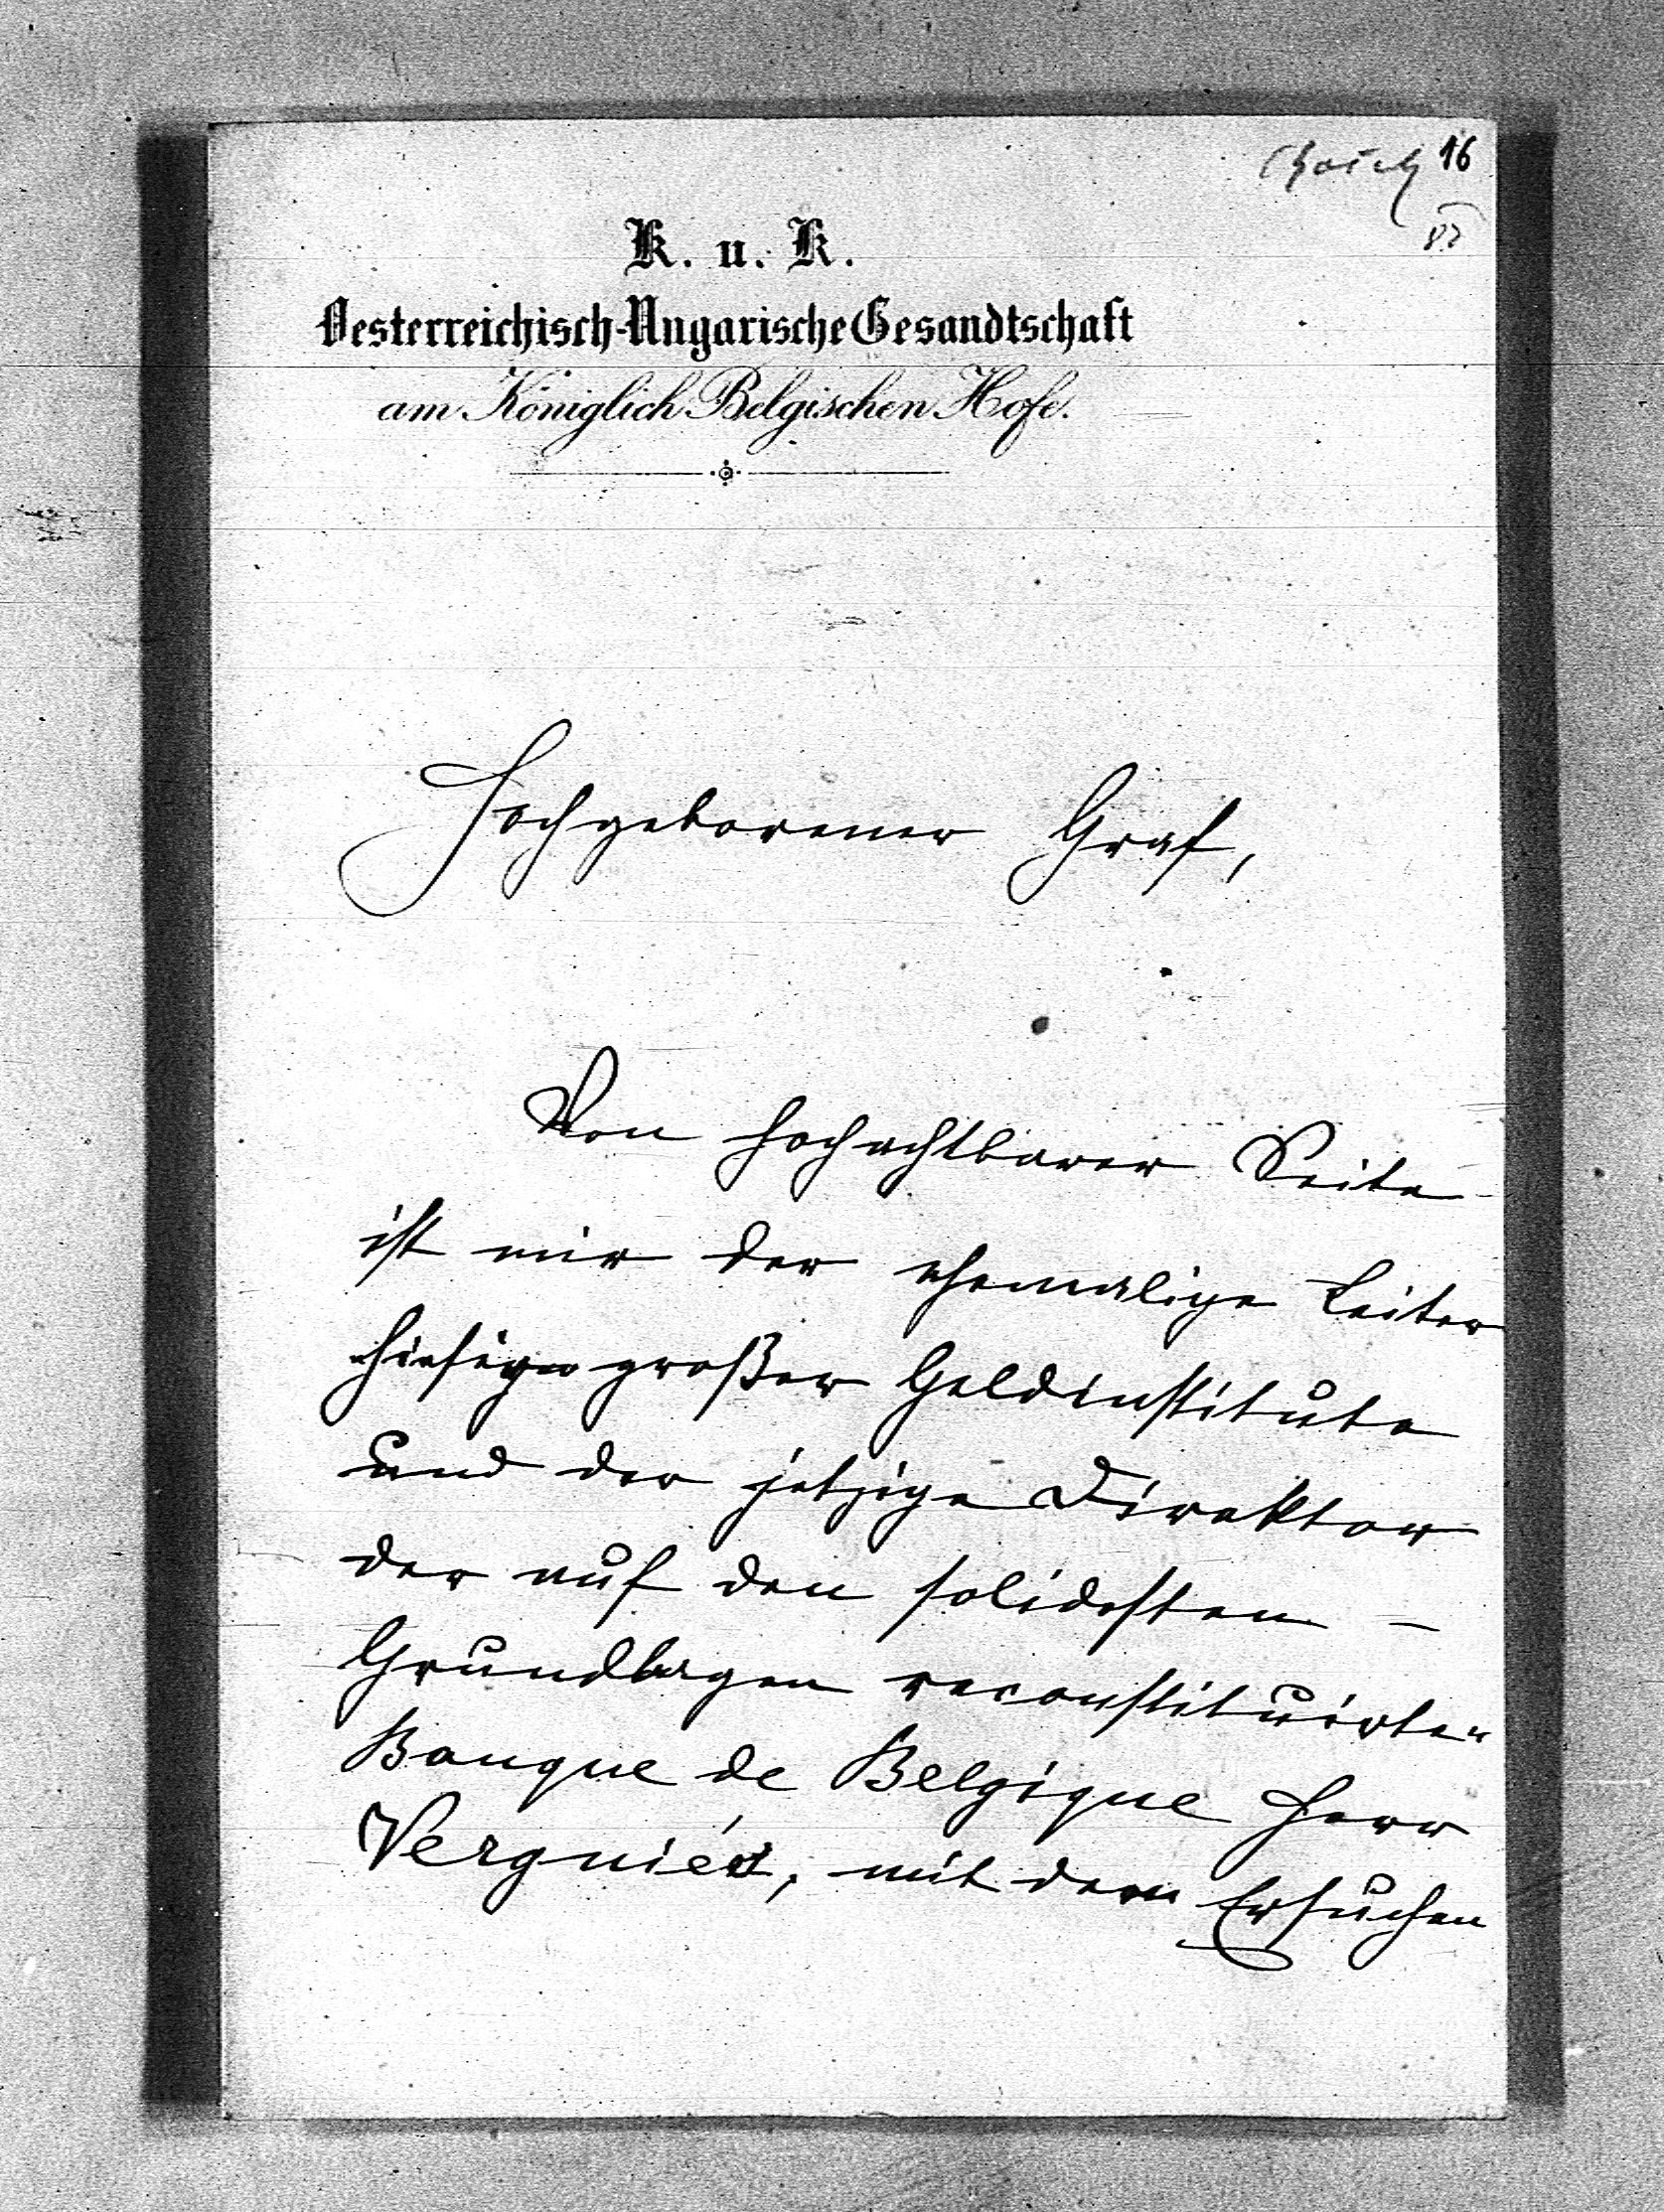 16
K. u. K.
Oesterreichisch-Ungarische Gesandtschaft
am Königlich Belgischen Hofe.
Hochgeborener Graf,
Von hochachtbarer Seite
ist mir der ehemalige Leiter
hiesiger großer Geldinstitute
und der jetzige Direktor
der auf den solidesten
Grundlagen reconstituirten
Banque de Belgique Herr
mit dem Ersuchen